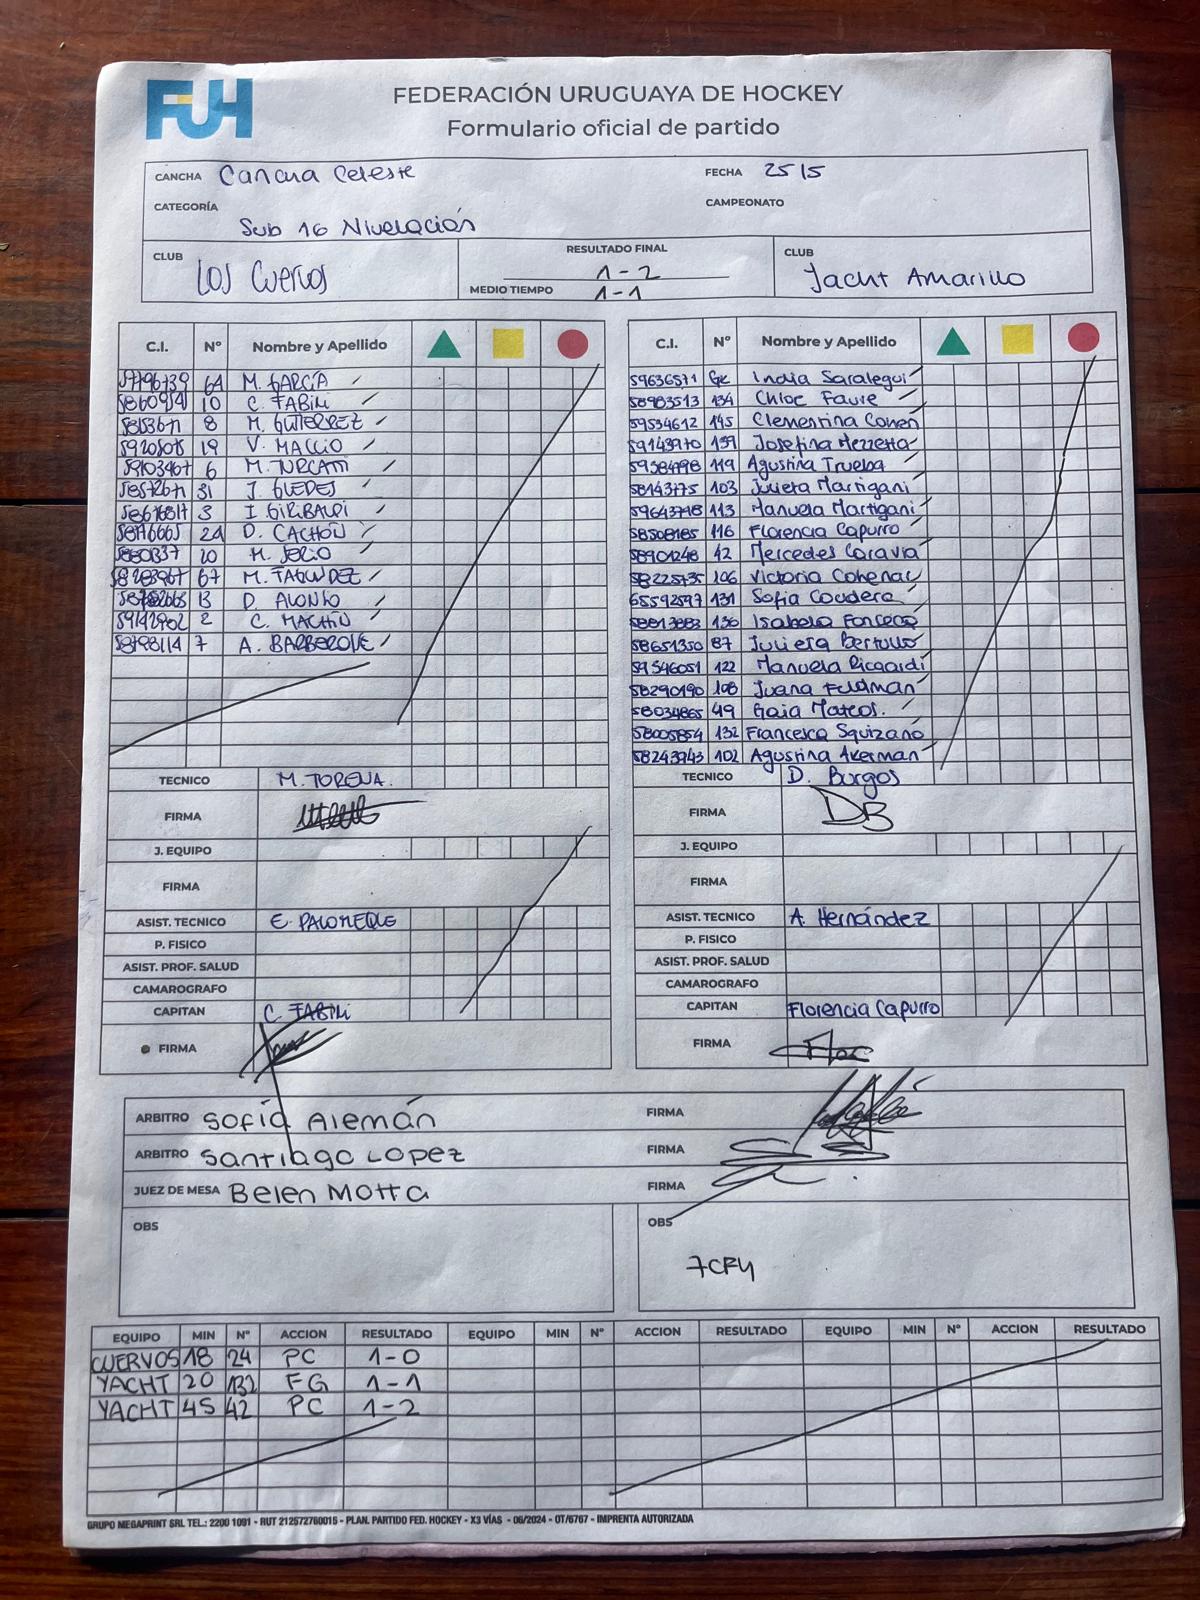 FUH
FEDERACIÓN URUGUAYA DE HOCKEY
Formulario oficial de partido
CANCHA Cancha Celeste FECHA 25/5
CATEGORÍA Sub 16 Nivelación CAMPEONATO
CLUB Los Cuervos RESULTADO FINAL 1-2 CLUB Yacht Amarillo
MEDIO TIEMPO 1-1
C.I. Nº Nombre y Apellido
64 M. GARCÍA
10 C. FABINI
8 M. GUTIERREZ
19 V. MACCIÓ
6 M. TURCATTI
31 J. GUEDES
3 I. GIRIBALDI
24 D. CACHÓN
20
67 M. FAGUNDEZ
13 D. ALONSO
59142902 2 C. MACHÍN
58798114 7 A. BARBEROUE
TECNICO M. TORENA.
FIRMA
J. EQUIPO
FIRMA
ASIST. TECNICO E. PALOMEQUE
P. FISICO
ASIST. PROF. SALUD
CAMAROGRAFO
CAPITAN C. FABINI
FIRMA
C.I. Nº Nombre y Apellido
59636571 GK India Saralegui
58983513 134 Chloe Faure
59534612 145 Clementina Cohen
59143970 139 Josefina Mezzetta
59584998 119 Agustina Trueba
58143775 103 Julieta Martigani
59643748 113 Manuela Martigani
58508185 116 Florencia Capurro
58901248 42 Mercedes Caravia
58225735 106 Victoria Cohenar
65592597 131 Sofia Coudera
136 Isabela Fonseca
58651350 87 Julieta Bertullo
59546051 122 Manuela Riccardi
58290190 108 Juana Feldman
58034865 49 Gaia Mateos.
58005854 132 Francesca Squizano
58243943 102 Agustina Akerman
TECNICO D. Burgos
FIRMA DB
J. EQUIPO
FIRMA
ASIST. TECNICO A. Hernández
P. FISICO
ASIST. PROF. SALUD
CAMAROGRAFO
CAPITAN Florencia Capurro
FIRMA Floc
ARBITRO Sofía Alemán FIRMA
ARBITRO Santiago Lopez FIRMA
JUEZ DE MESA Belen Motta FIRMA
OBS
OBS
7CF4
EQUIPO MIN Nº ACCION RESULTADO EQUIPO MIN Nº ACCION RESULTADO EQUIPO MIN Nº ACCION RESULTADO
CUERVOS 18 24 PC 1-0
YACHT 20 132 FG 1-1
YACHT 45 42 PC 1-2
GRUPO MEGAPRINT SRL TEL.: 2200 1091 - RUT 212572760015 - PLAN. PARTIDO FED. HOCKEY - X3 VÍAS - 06/2024 - OT/6767 - IMPRENTA AUTORIZADA